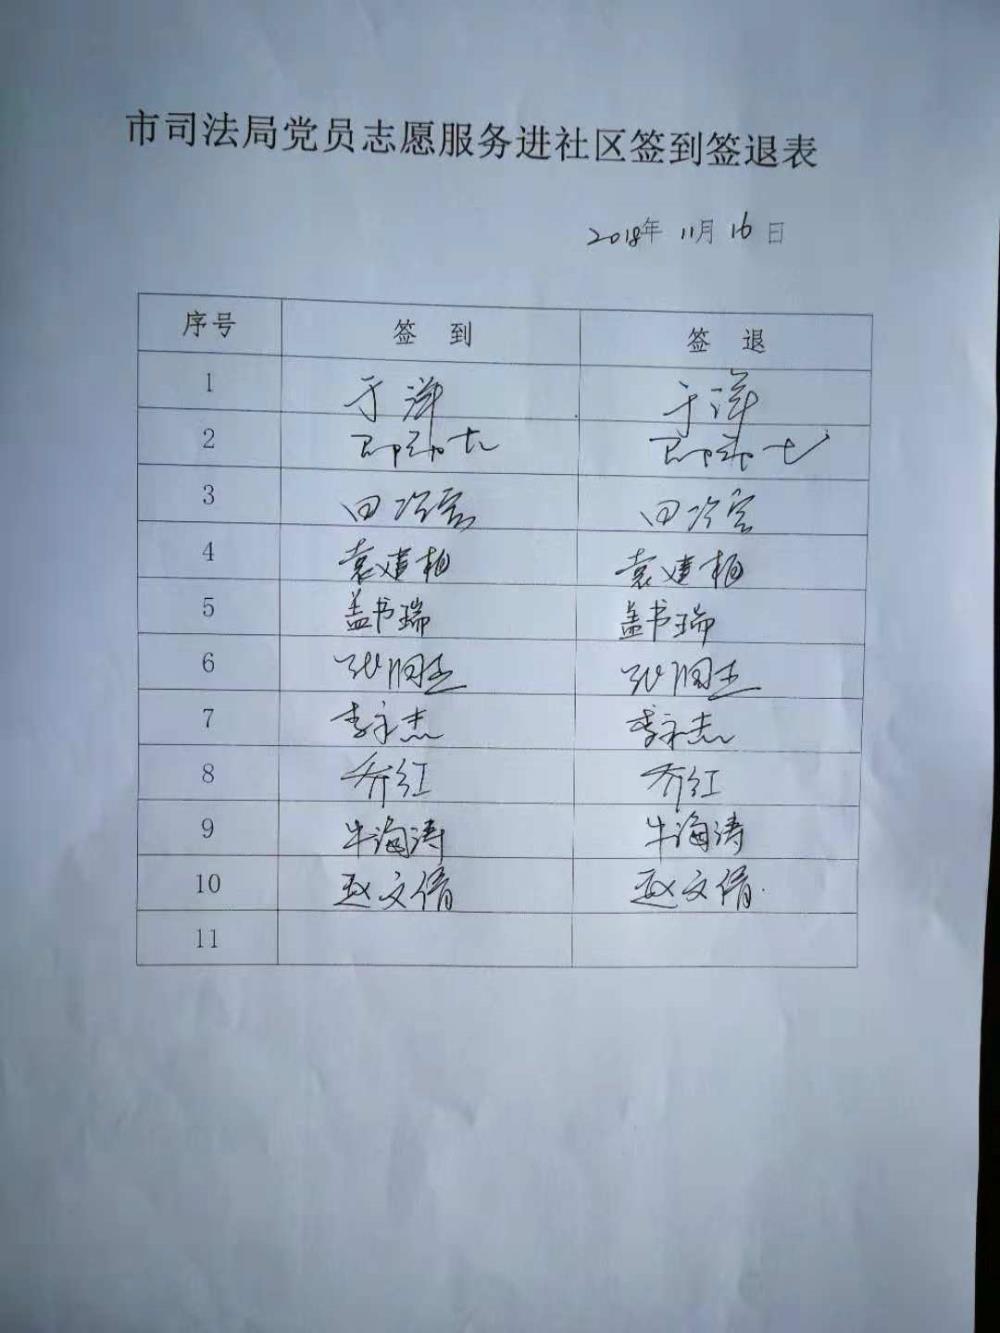 市司法局党员志愿服务进社区签到签退表
2018年 11月 16日
序号 签 到 签 退
1 于洋 于洋
2
3
4 袁建柏 袁建柏
5 盖书瑞 盖书瑞
6 张润杰 张润杰
7 李永杰 李永杰
8 乔红 乔红
9 牛海涛 牛海涛
10 赵文倩 赵文倩
11